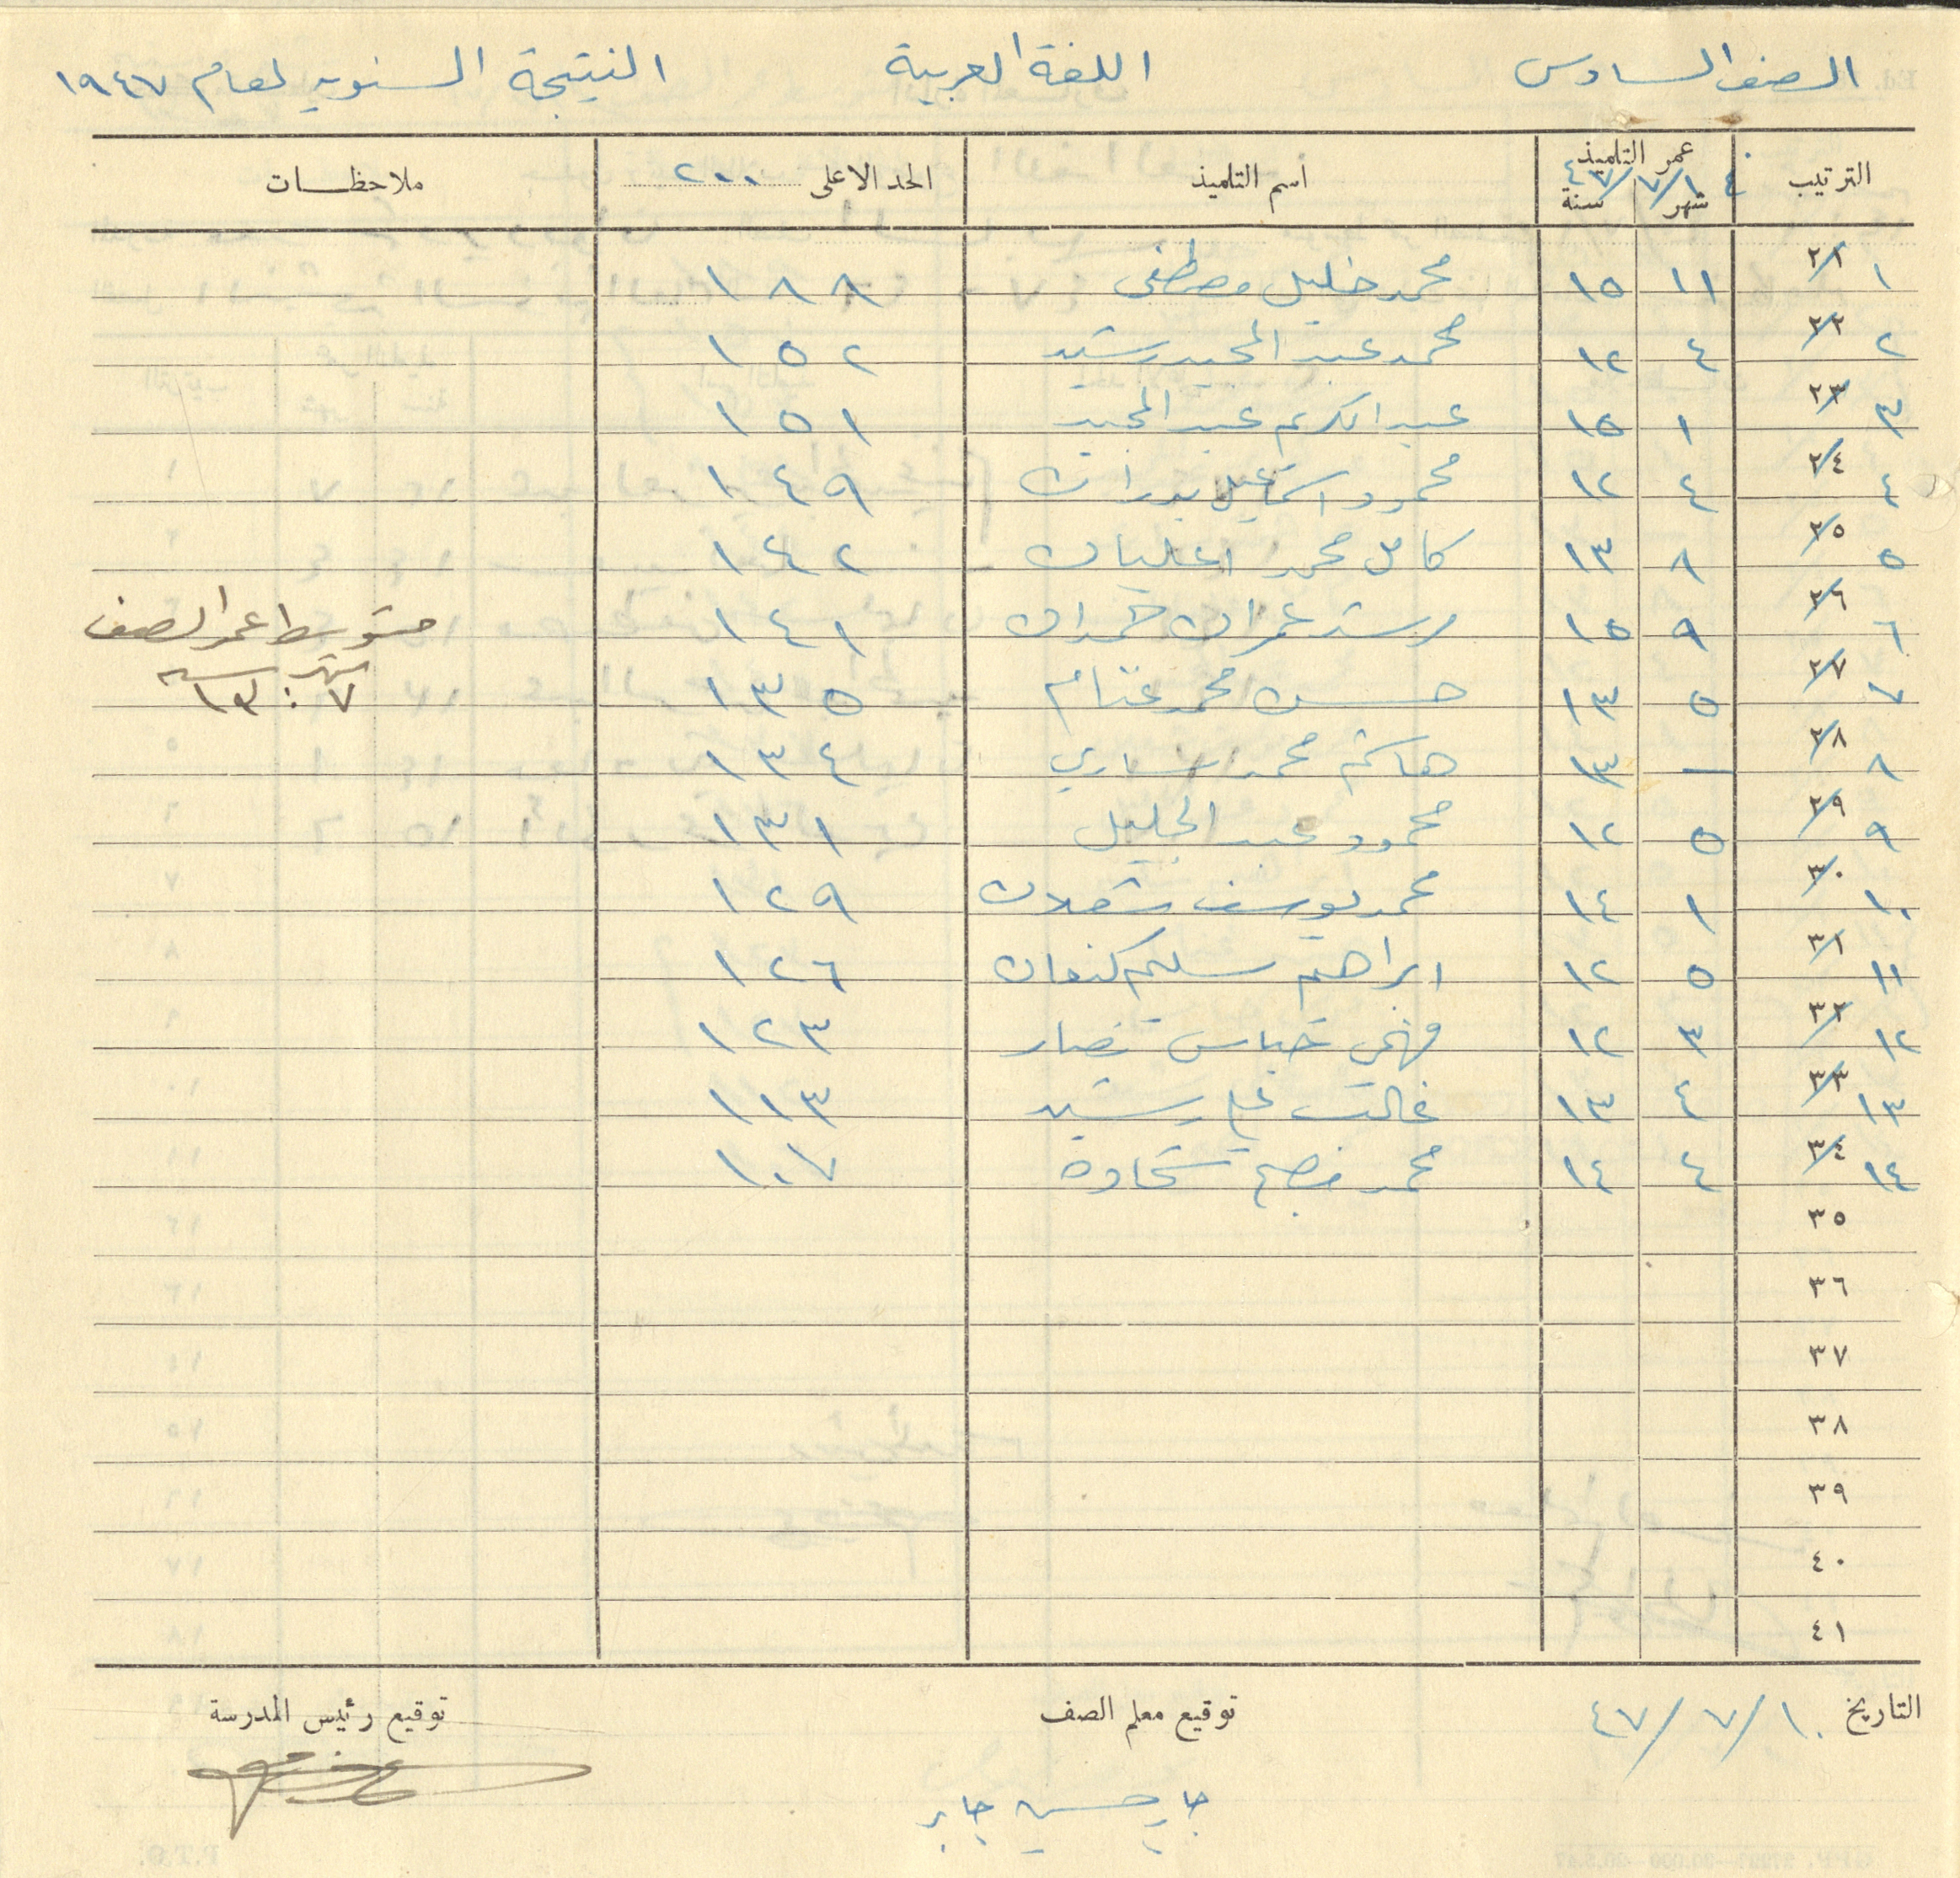 الصف السادس اللغة العربية النتيجة السنوية لعام ١٩٤٧
الترتيب عمر التلميذ اسم التلميذ الحد الاعلى ٢٠٠ ملاحظات
في ١/٧/٤٧
شهر سنة
١ ٢١ ١١ ١٥ محمد خليل مصطفى ١٨٨
٢ ٢٢ ٤ ١٢ محمد عبد المجيد رشيد ١٥٢
٣ ٢٣ ١ ١٥ عبد الكريم عبد المجيد ١٥١
٤ ٢٤ ٤ ١٢ محمود اسماعيل بدران ١٤٩
٥ ٢٥ ٨ ١٣ كامل محمد عليان ١٤٢
٦ ٢٦ ٩ ١٥ رشيد عمران حمدان ١٤١ متوسط عمر الصف
٧ ٢٧ ٥ ١٣ حسن محمد غنام ١٣٥ شهر سنة
٧ : ١٣
٨ ٢٨ — ١٣ هاشم محمد الساري ١٣٤
٩ ٢٩ ٥ ١٢ محمود عبد الجليل ١٣١
١٠ ٣٠ ١ ١٤ محمد يوسف شعلان ١٢٩
١١ ٣١ ٥ ١٢ ابراهيم سليم كنعان ١٢٦
١٢ ٣٢ ٣ ١٢ فهمي عباس نصار ١٢٣
١٣ ٣٣ ٤ ١٣ غالب علي رشيد ١١٣
١٤ ٣٤ ٤ ١٤ محمد شحادة ١٠٧
٣٥
٣٦
٣٧
٣٨
٣٩
٤٠
٤١
التاريخ ١٠/٧/٤٧ توقيع معلم الصف توقيع رئيس المدرسة
جابر حسين جابر